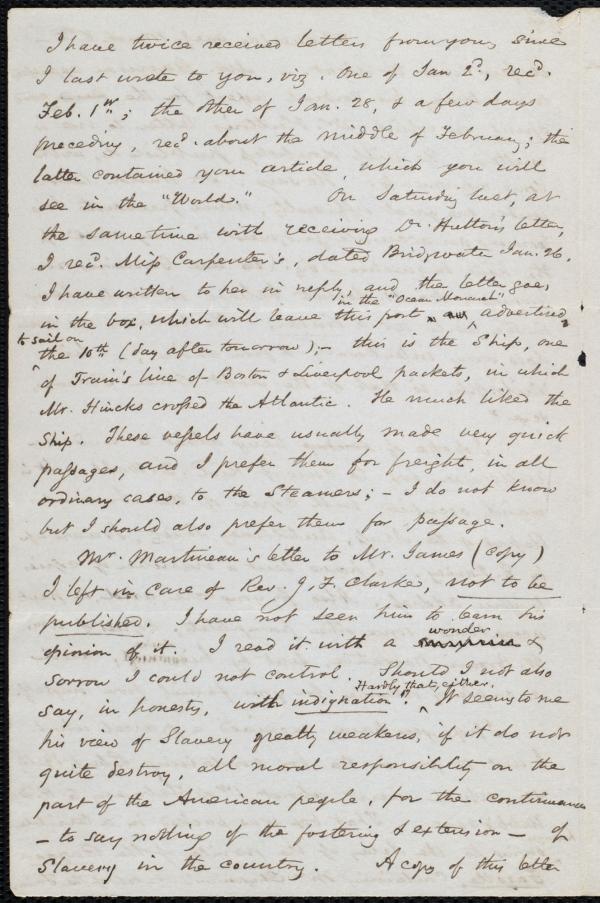 I have twice received letters from you, since
I last wrote to you, viz. One of Jan 2d., recd.
Feb. 1st.; the other of Jan. 28, & a few days
preceding, recd. about the middle of February; the
latter contained your article, which you will
see in the "World." On Saturday last, at
the same time with receiving Dr. Hutton's letter,
I recd. Miss Carpenter's, dated Bridgwater Jan. 26.
I have written to her in reply, and the letter goes
in the "Ocean Monarch"
in the box, which will leave this port, advertised
to sail on
the 10th (day after tomorrow);– this is the Ship, one
of Train's line of Boston & Liverpool packets, in which
Mr. Hincks crossed the Atlantic. He much liked the
Ship. These vessels have usually made very quick
passages, and I prefer them for freight, in all
ordinary cases, to the Steamers; – I do not know
but I should also prefer them for passage.
Mr. Martineau's letter to Mr. James (copy)
I left in care of Rev. J. F. Clarke, not to be
published. I have not seen him to learn his
wonder
opinion of it. I read it with a &
sorrow I could not control. Should I not also
Hardly that, either.
say, in honesty, with indignation? It seems to me
his view of Slavery greatly weakens, if it do not
quite destroy, all moral responsibility on the
part of the American people, for the continuance
– to say nothing of the fostering & extension – of
Slavery in the country. A copy of this letter